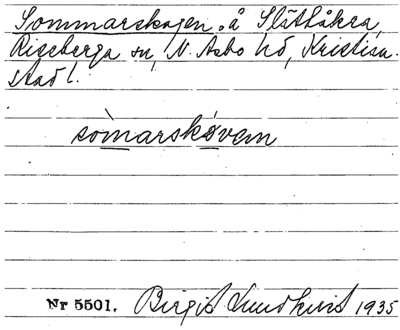 Sommarskogen, å Slättåkra,
Riseberga sn, N. Åsbo hd, Kristian-
stad l.
sòmarskóven
Nr 5501. Birgit Lundkvist 1935